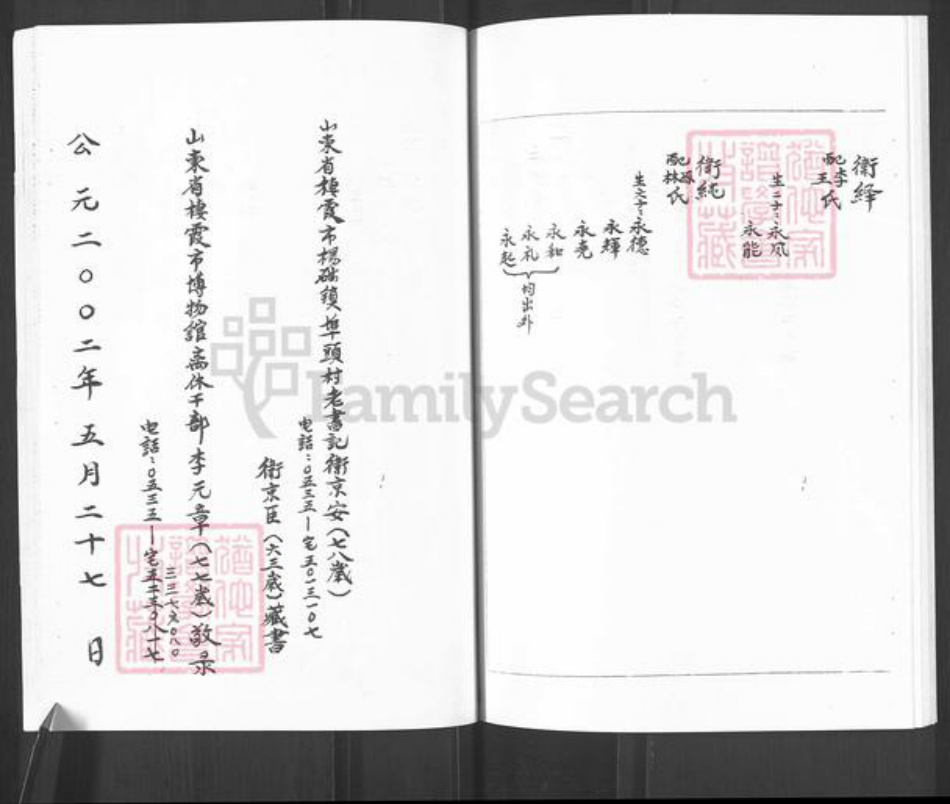 衛繹
配李王氏
生二子:永凤
永能
衛純
配
林氏
生六子:永德
永輝
永堯
永和
永礼
永起
均出外
山東省棲霞市楊础鎮埠頭村老書記衛京安(七八歲)
电話:0五三五—宅五0一三一0七
衛京臣(六三歲)藏書
山東省棲霞市博物館离休干部李元章(七七歲)敬录
电話:0五三五—宅五
公元二00二年五月二十七日
FamilySearch